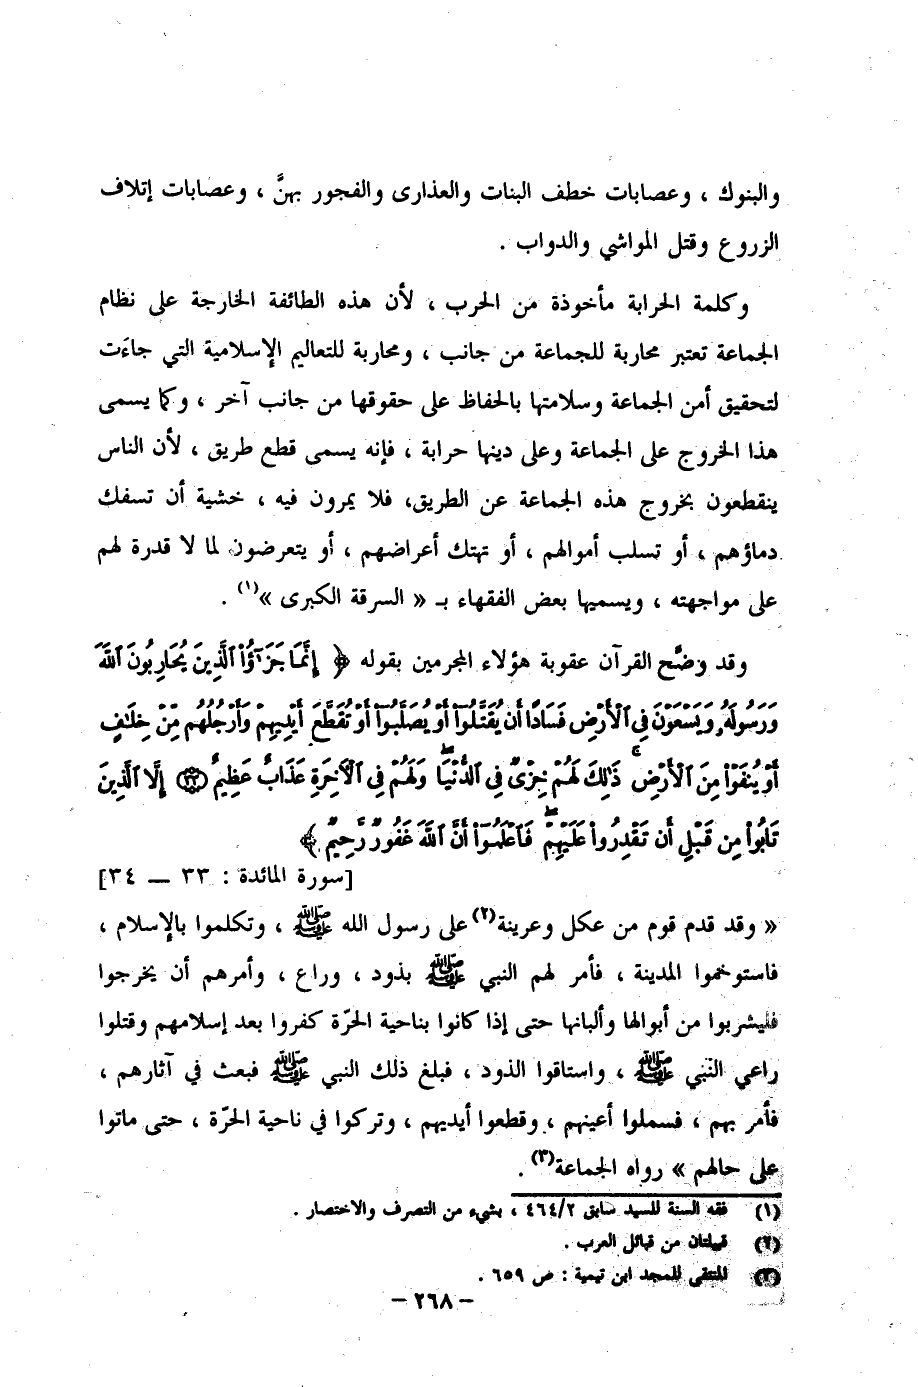 والبنوك ، وعصابات خطف البنات والعذارى والفجور بهنَّ ، وعصابات إتلاف
الزروع وقتل المواشي والدواب .
وكلمة الحرابة مأخوذة من الحرب ، لأن هذه الطائفة الخارجة على نظام
الجماعة تعتبر محاربة للجماعة من جانب ، ومحاربة للتعاليم الإسلامية التي جاءَت
لتحقيق أمن الجماعة وسلامتها بالحفاظ على حقوقها من جانب آخر ، وكما يسمى
هذا الخروج على الجماعة وعلى دينها حرابة ، فإنه يسمى قطع طريق ، لأن الناس
ينقطعون بخروج هذه الجماعة عن الطريق، فلا يمرون فيه ، خشية أن تسفك
دماؤهم ، أو تسلب أموالهم ، أو تهتك أعراضهم ، أو يتعرضون لما لا قدرة لهم
على مواجهته ، ويسميها بعض الفقهاء بـ « السرقة الكبرى »(١) .
وقد وضَّح القرآن عقوبة هؤلاء المجرمين بقوله ﴿ إِنَّمَا جَزَٰٓؤُا۟ الَّذِينَ يُحَارِبُونَ اللَّهَ
وَرَسُولَهُۥ وَيَسْعَوْنَ فِى الْأَرْضِ فَسَادًا أَن يُقَتَّلُوٓا۟ أَوْ يُصَلَّبُوٓا۟ أَوْ تُقَطَّعَ أَيْدِيهِمْ وَأَرْجُلُهُم مِّنْ خِلَٰفٍ
أَوْ يُنفَوْا۟ مِنَ الْأَرْضِ ۚ ذَٰلِكَ لَهُمْ خِزْىٌ فِى الدُّنْيَا ۖ وَلَهُمْ فِى الْآخِرَةِ عَذَابٌ عَظِيمٌ ﴿٣٣﴾ إِلَّا الَّذِينَ
تَابُوا۟ مِن قَبْلِ أَن تَقْدِرُوا۟ عَلَيْهِمْ ۖ فَاعْلَمُوٓا۟ أَنَّ اللَّهَ غَفُورٌ رَّحِيمٌ ﴾
[سورة المائدة : ٣٣ — ٣٤]
« وقد قدم قوم من عكل وعرينة(٢) على رسول الله ﷺ ، وتكلموا بالإسلام ،
فاستوخموا المدينة ، فأمر لهم النبي ﷺ بذود ، وراع ، وأمرهم أن يخرجوا
فليشربوا من أبوالها وألبانها حتى إذا كانوا بناحية الحرّة كفروا بعد إسلامهم وقتلوا
راعي النّبي ﷺ ، واستاقوا الذود ، فبلغ ذلك النبي ﷺ فبعث في آثارهم ،
فأمر بهم ، فسملوا أعينهم ، وقطعوا أيديهم ، وتركوا في ناحية الحرّة ، حتى ماتوا
على حالهم » رواه الجماعة(٣) .
(١) فقه السنة للسيد سابق ٤٦٤/٢ ، بشيء من التصرف والاختصار .
(٢) قبيلتان من قبائل العرب .
(٣) المنتقى للمجد ابن تيمية : ص ٦٥٩ .
– ٢٦٨ –